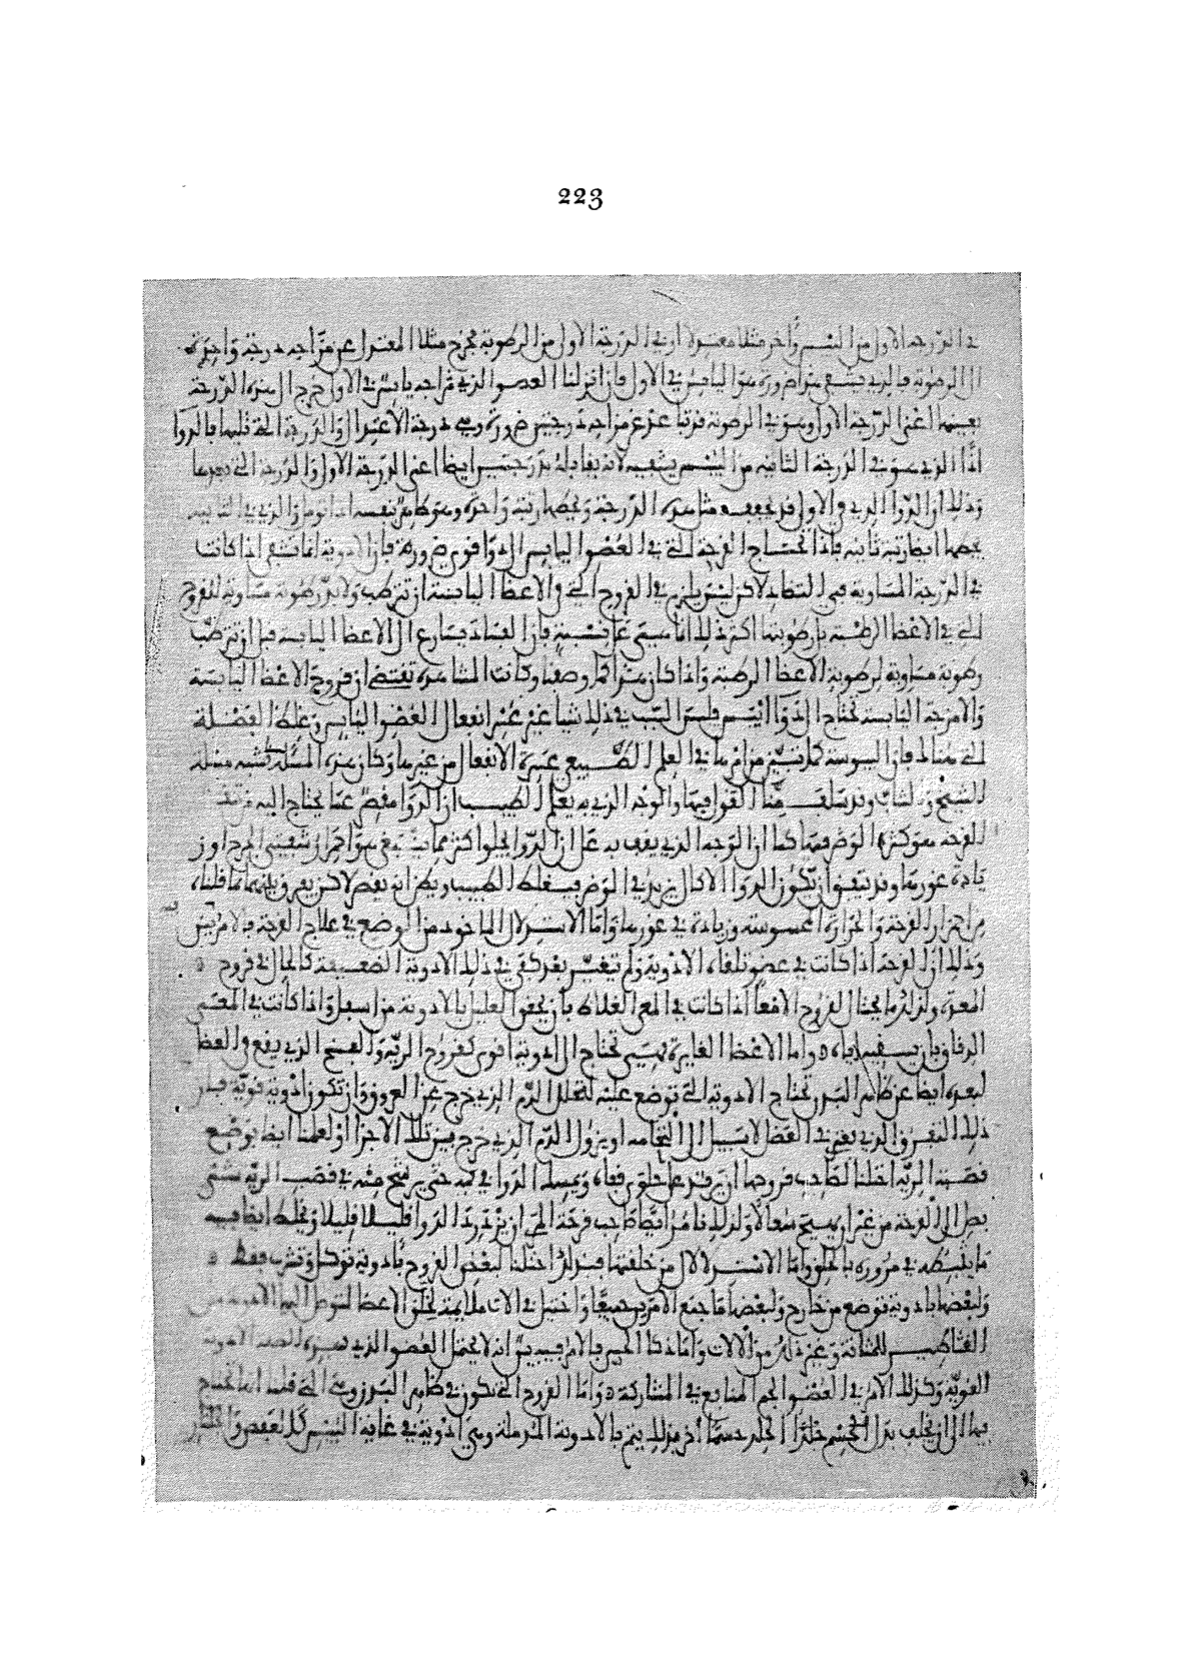 223
في الدرجة الاولى من اليبس واخر مثلا معتدلا او في الدرجة الاولى من الرطوبة يخرج مثلا المعتدل عن مزاجه درجة واحدة
الى الرطوبة فالذي يشفي هذا ضرورة هو اليابس في الاولى فان انزلنا العضو الذي مزاجه يابس في الاولى خرج الى هذه الدرجة
بعينها اعني الدرجة الاولى وهو في الرطوبة فزيا عن مزاجه درجتين ضرورة وهي درجة الاعتدال والدرجة التي تليها فالدوا
اذا الذي هو في الدرجة الثانية من اليبس يشفيه لانه يقابله بدرجتين ايضا اعني الدرجة الاولى والدرجة التي بعدها
وذلك ان الدوا الذي في الاولى قد يجفف مثل هذه الدرجة ويحطها رتبة واحدة وهو كامن نفسه اذا توما والذي في الثانية
يحطها ايضا رتبة ثانية فاذا تحتاج القرحة التي في العضو اليابس الى دوا اقوى ضرورة فان الادوية انما تشفي اذا كانت
في الدرجة المساوية في التضاد لاكن ليس يلزم في القروح التي في الاعضا اليابسة ان ترطب ولا بد رطوبة مساوية للقروح
التي في الاعضا الرطبة بل رطوبتها اكثر ذلك اما هي
رطوبة مساوية لرطوبة الاعضا الرطبة واذا كان هذا كما وصفنا وكانت المشاهدة تقتضي ان قروح الاعضا اليابسة
والامزجة اليابسة تحتاج الى دوا ايبس فليس السبب في ذلك شيا غير عسر انفعال العضو اليابس وغلظ الفضلة
التي هنالك فان اليبوسة كما تبين من امرها في العلم الطبيعي عسرة الانفعال من غيرها وكان هذه المسلة تشبه مسلة
الشيخ والشاب وقد سلف منا القول فيها والوجه الذي به يعلم الطبيب ان الدوا مقصر عما يحتاج اليه في تجفيف
القرحة هو كثرة الوضر فيها كما ان الوجه الذي يقف به على ان الدوا يجلوا اكثر مما ينبغي هو احمرار شفتي الجرح او ز
يادة غورها وقد يتفق ان تكون الدوا الاكال يزيد في الوضر فيغلط الطبيب ويظن انه يقصر لاكن يفرق بينهما ما قلناه
من احمرار القرحة والحرارة المحسوسة وزيادة في غورها واما الاستدلال الماخوذ من الوضع في علاج القرحة فالامر بين
وذلك ان القرحة اذا كانت في عضو تلقاه الادوية ولم تتغير بعد كفى في ذلك الادوية الضعيفة كالحال في قروح
المعدة ولذلك ما يحتال لقروح الامعا اذا كانت في المعى الغلاظ بان يحقن العليل بالادوية من اسفل واذا كانت في المعى
الدقاق بان يسقيه اياه واما الاعضا الغايرة فهي تحتاج الى ادوية اقوى كقروح الرية والفسخ الذي يقع في العضل
لبعده ايضا عن ظاهر البدن تحتاج الادوية التي توضع عليه لتحلل الدم الذي خرج عن العروق وان تكون ادوية قوية قبل
ذلك التفرق الذي يقع في العضل لا سبيل الى التحامه او يزول الدم الذي خرج بين تلك الاجزا او لعلمنا ايضا بوضع
قصبة الرية احتلنا لصاحب قروحها ان يرقد على حلق قفاه ويمسك الدوا في فمه حتى يرشح منه في قصب الرية شي
يصل الى القرحة من غير ان يهيج سعالا ولذلك نامر ايضا صاحب قرحة المري ان يزدرد الدوا قليلا قليلا ويخلط ايضا فيه
ما يثبطه في مروره بالحلق واما الاستدلال من خلقتها فبذلك احتلنا لبعض القروح بادوية توكل وتشرب فقط
ولبعضها بادوية توضع من خارج ولبعضها ما جمع الامرين جميعا واحتيل في الات ملايمة لخلق الاعضا لتوصل اليها الادوية مثل
القثاطير للمثانة وغير ذلك من الالات واما ذكا الحس فالامر فيه بين انه لا يحتمل العضو الذي بهذه الصفة الادوية
القوية وكذلك الامر في العضو الجم المنافع في المشاركة واما القروح التي تكون في ظاهر البدن وهي التي قلنا انها تحتاج
فيها الى ان يخلف بدل الجسم جلدا الجلد جسما اخر فذلك يتم بالادوية المدملة وهي ادوية في غاية اليبس كالعفص